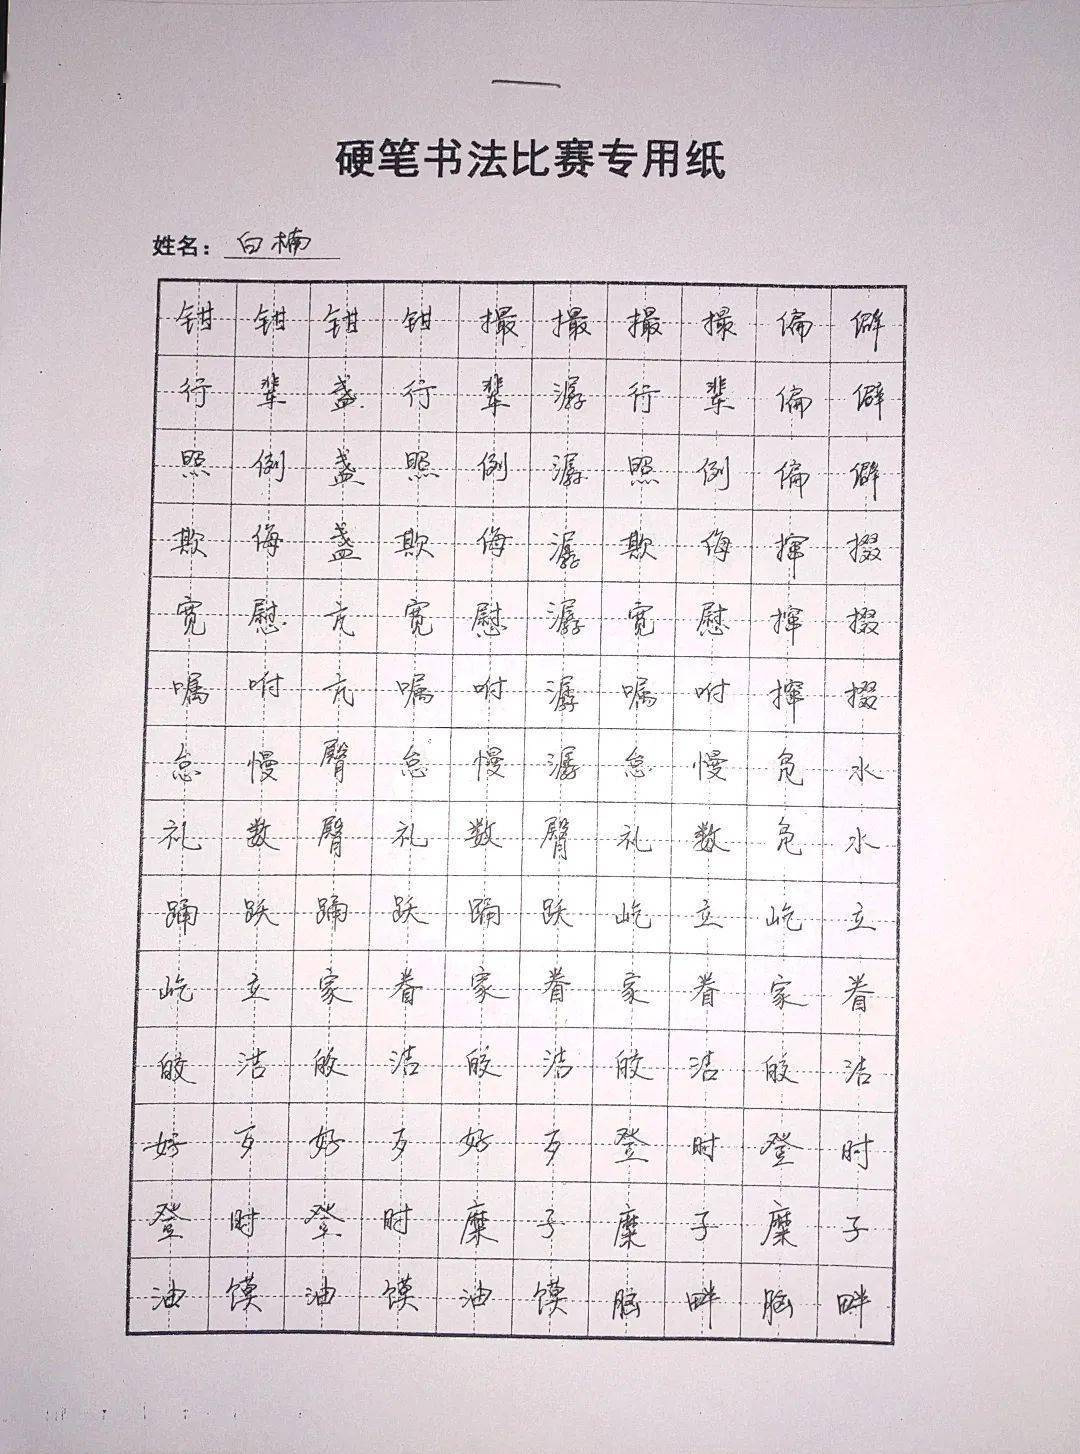 硬笔书法比赛专用纸
姓名：白楠
钳钳钳钳撮撮撮撮偏僻
行辈盏行辈潺行辈偏僻
照例盏照例潺照例偏僻
欺侮盏欺侮潺欺侮撺掇
宽慰亢宽慰潺宽慰撺掇
嘱咐亢嘱咐潺嘱咐撺掇
怠慢臀怠慢潺怠慢凫水
礼数臀礼数臀礼数凫水
踊跃踊跃踊跃屹立屹立
屹立家眷家眷家眷家眷
皎洁皎洁皎洁皎洁皎洁
好歹好歹好歹登时登时
登时登时糜子糜子糜子
油馍油馍油馍脑畔脑畔